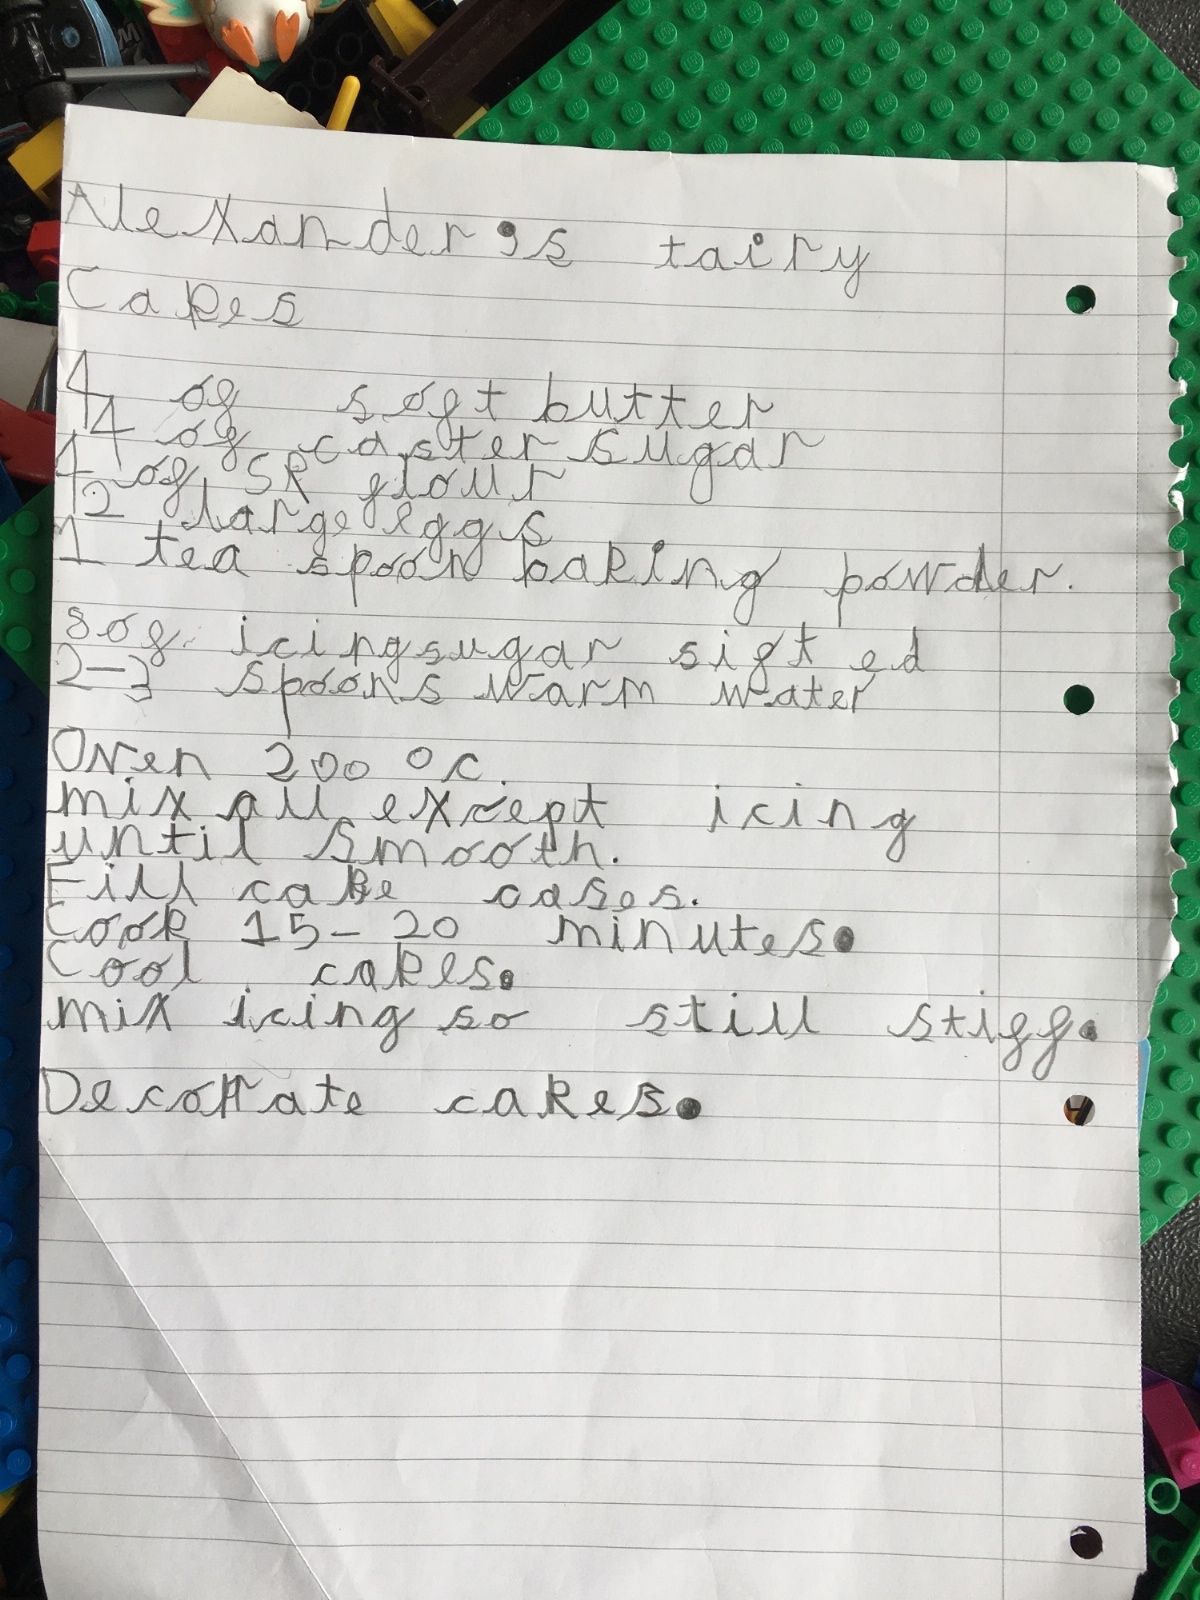 Alexander's fairy
Cakes
40g soft butter
40g caster sugar
40g SR flour
2 large eggs
1 tea spoon baking powder.
80g icing sugar sifted
2-3 spoons warm water
Oven 200 °c.
mix all except icing
until smooth.
Fill cake cases.
Cook 15-20 minutes.
Cool cakes.
mix icing so still stiff.
Decorate cakes.